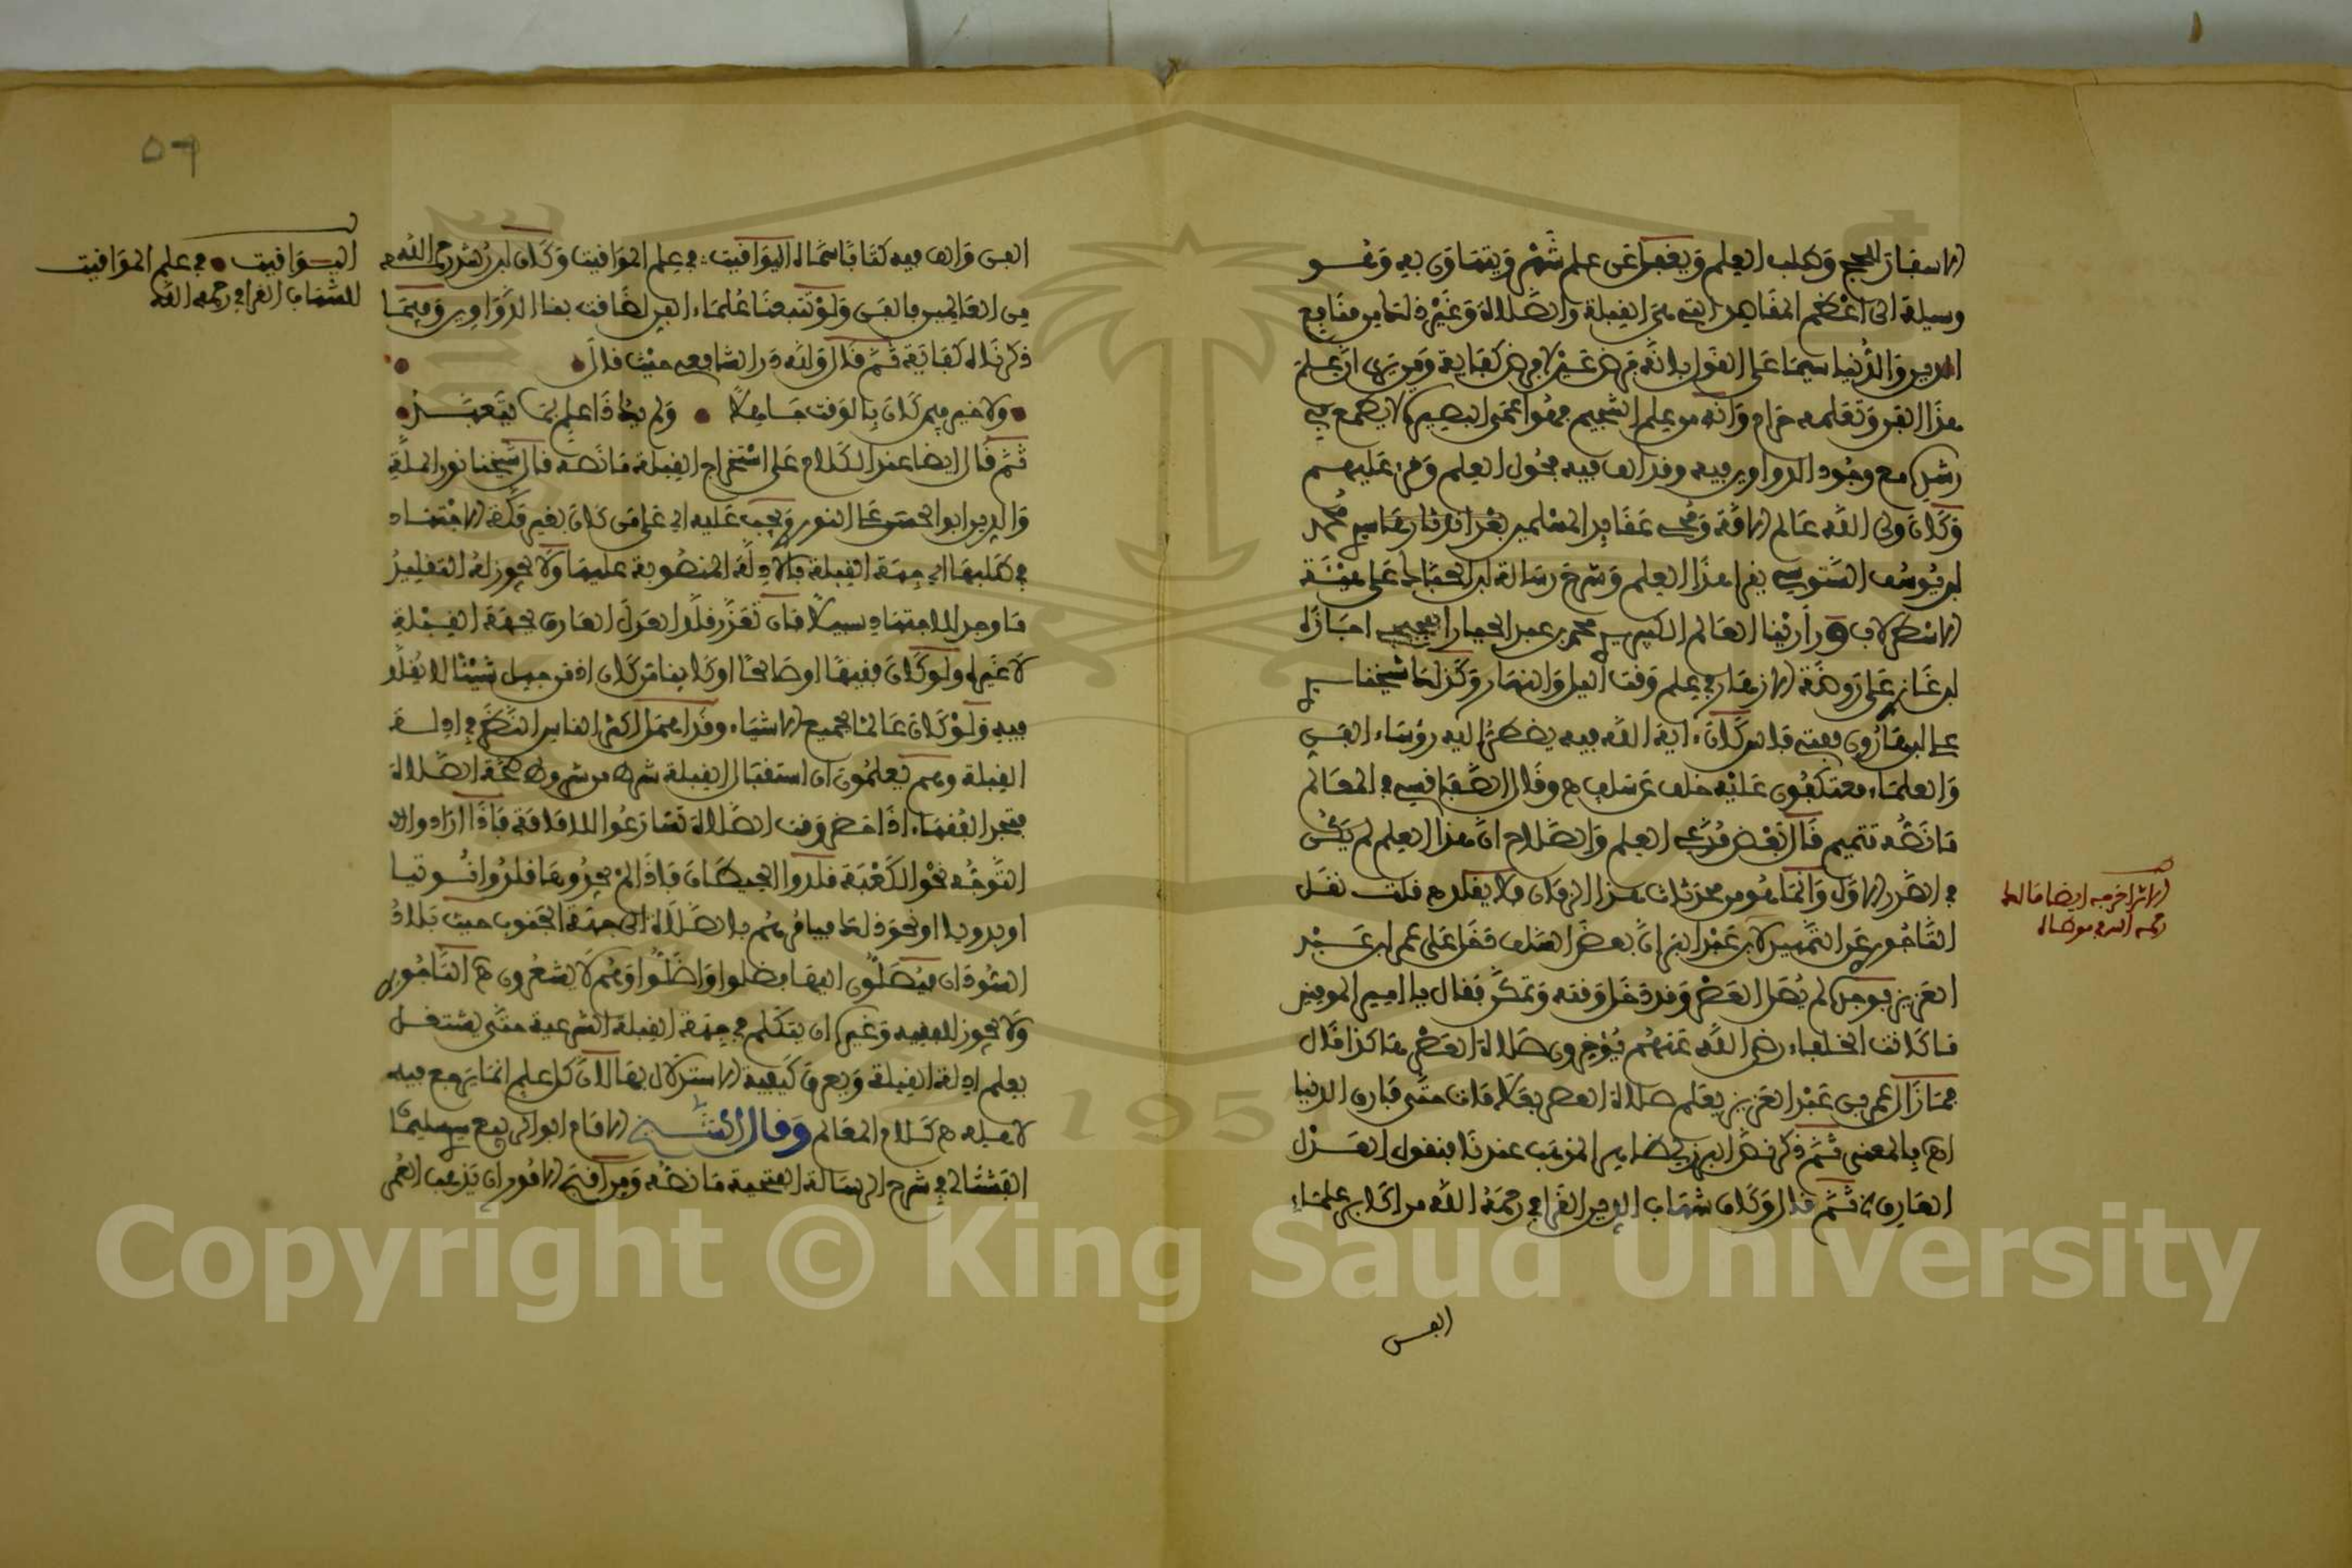 الاسفار للحج وطلب العلم ويغفل عن علم شهر ويتهاون به وهو
وسيلة الى اعظم المقاصد التي هي القبلة والصلاة وغير ذلك من منافع
الدين والدنيا سيما على القول بانه فرض عين لا فرض كفاية ومن يرى ان علم
هذا الفن وتعلمه حرام وانه من علم التنجيم فهو اعمى البصيرة لا يطمع في
رشده مع وجود الدواوين فيه وقد الف فيه فحول العلم وقرئ عليهم
وكان ولي الله عالم الامة ومحيي عقائد المسلمين بعد اندثارها سيدي محمد
ابن يوسف السنوسي يقرا هذا العلم وشرح رسالة ابن الحباك على صنعة
الاسطرلاب وراينا العالم الكبير سيدي محمد بن عبد الجبار الفجيجي اجازه
ابن غازي على روضة الازهار في علم وقت الليل والنهار وكذلك شيخنا سيدي
علي ابن هارون مفتي فاس كان اية الله فيه يضطر اليه رؤساء الفن
والعلماء معتكفون عليه خلف عن سلف ه وقال الصفاقسي في المعالم
ما نصه تتميم قال بعض مدعي العلم والصلاح ان هذا العلم لم يكن
في الصدر الاول وانما هو من محدثات هذا الزمان فلا يقلده قلت نقل
التاجوري عن التمهيد لابن عبد البر ان بعض السلف دخل على عمر ابن عبد
العزيز فوجده لم يصل العصر وقد دخل وقته وتمكن فقال يا امير المومنين
ما كانت الخلفاء رضي الله عنهم يؤخرون صلاة العصر هكذا قال
فما زال عمر بن عبد العزيز يعلم صلاة العصر بعلامات حتى فارق الدنيا
اه بالمعنى ثم ذكر نص البرزلي ظاهر المذهب عندنا بنقول العدل
العارف ثم قال وكان شهاب الدين القرافي رحمه الله من اكابر علماء
الفن
الاثر اخرجه ايضا مالك
رحمه الله في موطاه
٥٦
الفن والف فيه كتابا سماه اليواقيت في علم المواقيت وكان ابن رشد رحمه الله
من العالمين بالفن ولو تتبعنا علماء الفن لضاقت بنا الدواوين وفيما
ذكرناه كفاية ثم قال ولله در الشافعي حيث قال
ولا خير فيمن كان بالوقت جاهلا ولم يك ذا علم بما يتعبد
ثم قال ايضا عند الكلام على استخراج القبلة ما نصه قال شيخنا نور الملة
والدين ابو الحسن علي النوري ويجب عليه اي على من كان بغير مكة الاجتهاد
في طلبها اي جهة القبلة بالادلة المنصوبة عليها ولا يجوز له التقليد
ما وجد للاجتهاد سبيلا فان تعذر قلد العدل العارف بجهة القبلة
لا غيره ولو كان فقيها او صالحا او كائنا من كان اذ من جهل شيئا لا يقلد
فيه ولو كان عالما بجميع الاشياء وقد اهمل اكثر الناس النظر في ادلة
القبلة وهم يعلمون ان استقبال القبلة شرط من شروط صحة الصلاة
فتجد الفقهاء اذا حضر وقت الصلاة تسارعوا للامامة فاذا ارادوا
التوجه نحو الكعبة قلدوا الحيطان فاذا لم يجدوها قلدوا نوتيا
او بدويا او نحو ذلك فيامرهم بالصلاة الى جهة الجنوب حيث بلاد
السودان فيصلون اليها فضلوا واضلوا وهم لا يشعرون ه التاجوري
ولا يجوز للفقيه وغيره ان يتكلم في جهة القبلة الشرعية حتى يشتغل
بعلم ادلة القبلة ويعرف كيفية الاستدلال بها لان كل علم انما يرجع فيه
لاهله ه كلام المعالم وقال الشيخ الامام ابو الربيع سليمان
الفشتالي في شرح الرسالة الفتحية ما نصه ومن اقبح الامور ان يذهب العمر
اليواقيت في علم المواقيت
للشهاب القرافي رحمه الله